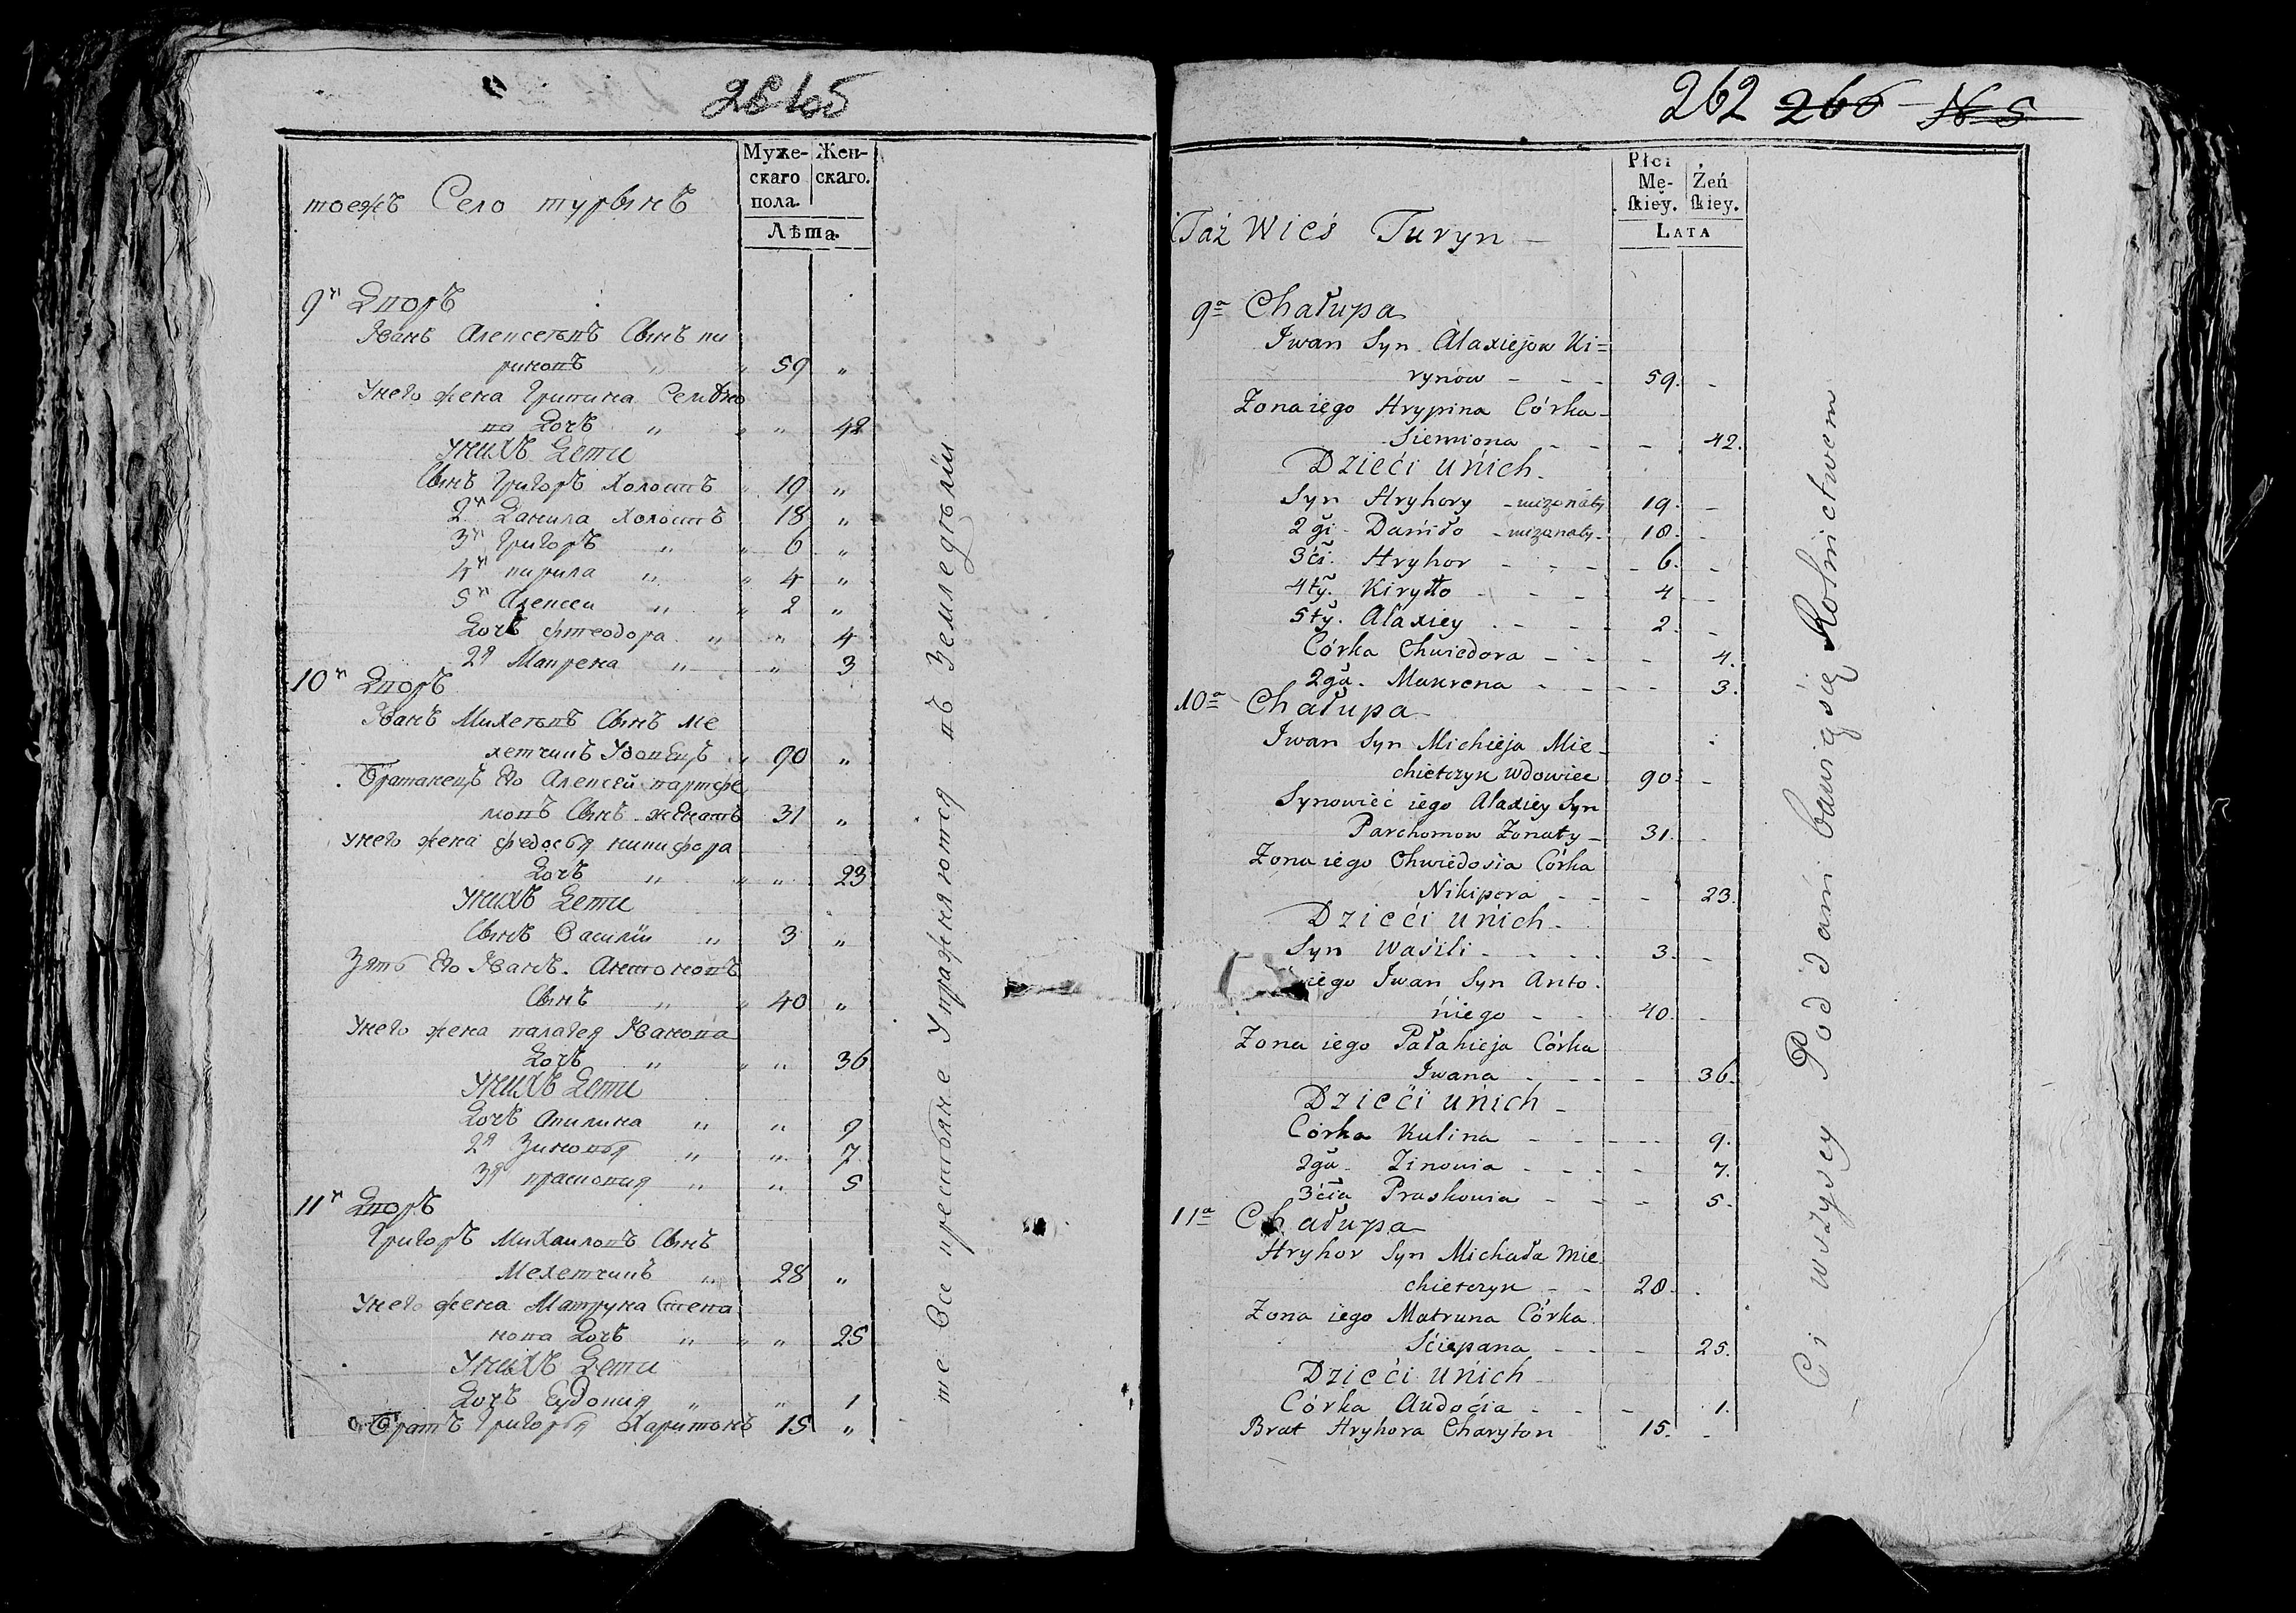 Муже- Жен-
скаго скаго.
пола.
Лѣта.
тоежъ Село турынъ
9й Дворъ
Иванъ Алексеевъ Сынъ ки
риновъ " " 59 "
Унего жена Грипина Семіоно
ва Дочь " " " 42
Унихъ Дети
Сынъ Григоръ Холостъ " 19 "
2й Данила холостъ 18 "
3й Григоръ " " 6 "
4й кирила " " 4 "
5й Алексеи " " 2 "
Дочь фтеодора " " 4
2я Макрена " " 3
10й Дворъ
Иванъ Михеевъ Сынъ Ме
хетчикъ Удовецъ " 90 "
Братанецъ Его Алексей пархо
мовъ Сынъ женатъ 31 "
унего жена федосья никифора
Дочь " " " 23
Унихъ Дети
Сынъ Василіи " 3 "
Зять Его Иванъ Антоновъ
Сынъ " " 40 "
Унего жена палагея Иванова
Дочь " " " 36
Унихъ Дети
Дочь Акилина " " 9
2я Зиновья " " 7
3я прасковия " " 5
11й Дворъ
Григоръ Михаиловъ Сынъ
Мехетчикъ " 28 "
Унего жена Матруна Степа
нова Дочь " " " 25
Унихъ Дети
Дочь Еудокия " " 1
Братъ Григорья Харитонъ 15 "
те Все крестьяне Упражняются въ Земледѣлии
262 266 N 5
Płci
Mę- Żeń
skiey. skiey.
LATA
Taż Wieś Turyn
9a Chałupa
Iwan Syn Alaxiejow Ki=
rynow - - - 59. -
Zona iego Hrypina Córka
Siemiona - - - 42.
Dzieći unich
Syn Hryhory - niezonaty 19. -
2gi - Daniło - niezonaty - 18. -
3ći. Hryhor - - - 6. -
4ty. Kiryłło - - - 4 -
5ty. Alaxiey - - - 2. -
Córka Chwiedora - - - 4.
2ga. Makrena - - - - 3.
10a Chałupa
Iwan Syn Michieja Mie-
chietczyk wdowiec 90. -
Synowieć iego Alaxiey Syn
Parchomow Zonaty - 31. -
Zona iego Chwiedosia Córka
Nikipera - - - 23.
Dzieći unich
Syn Waśili - - - 3. -
iego Iwan Syn Anto.
niego - - 40. -
Zona iego Pałahieja Córka
Iwana - - - - 36.
Dzieći unich -
Córka Kulina - - - - 9.
2ga - Zinowia - - - - 7.
3ćia Praskowia - - - - 5.
11a Chałupa
Hryhor Syn Michała Mie
chietczyk - - 28. .
Zona iego Matruna Córka
Sćiepana - - - 25.
Dzieći unich -
Córka Audoćia - - - 1.
Brat Hryhora Charyton 15. -
Ci wszyscy Poddani bawią się Rolnictwem